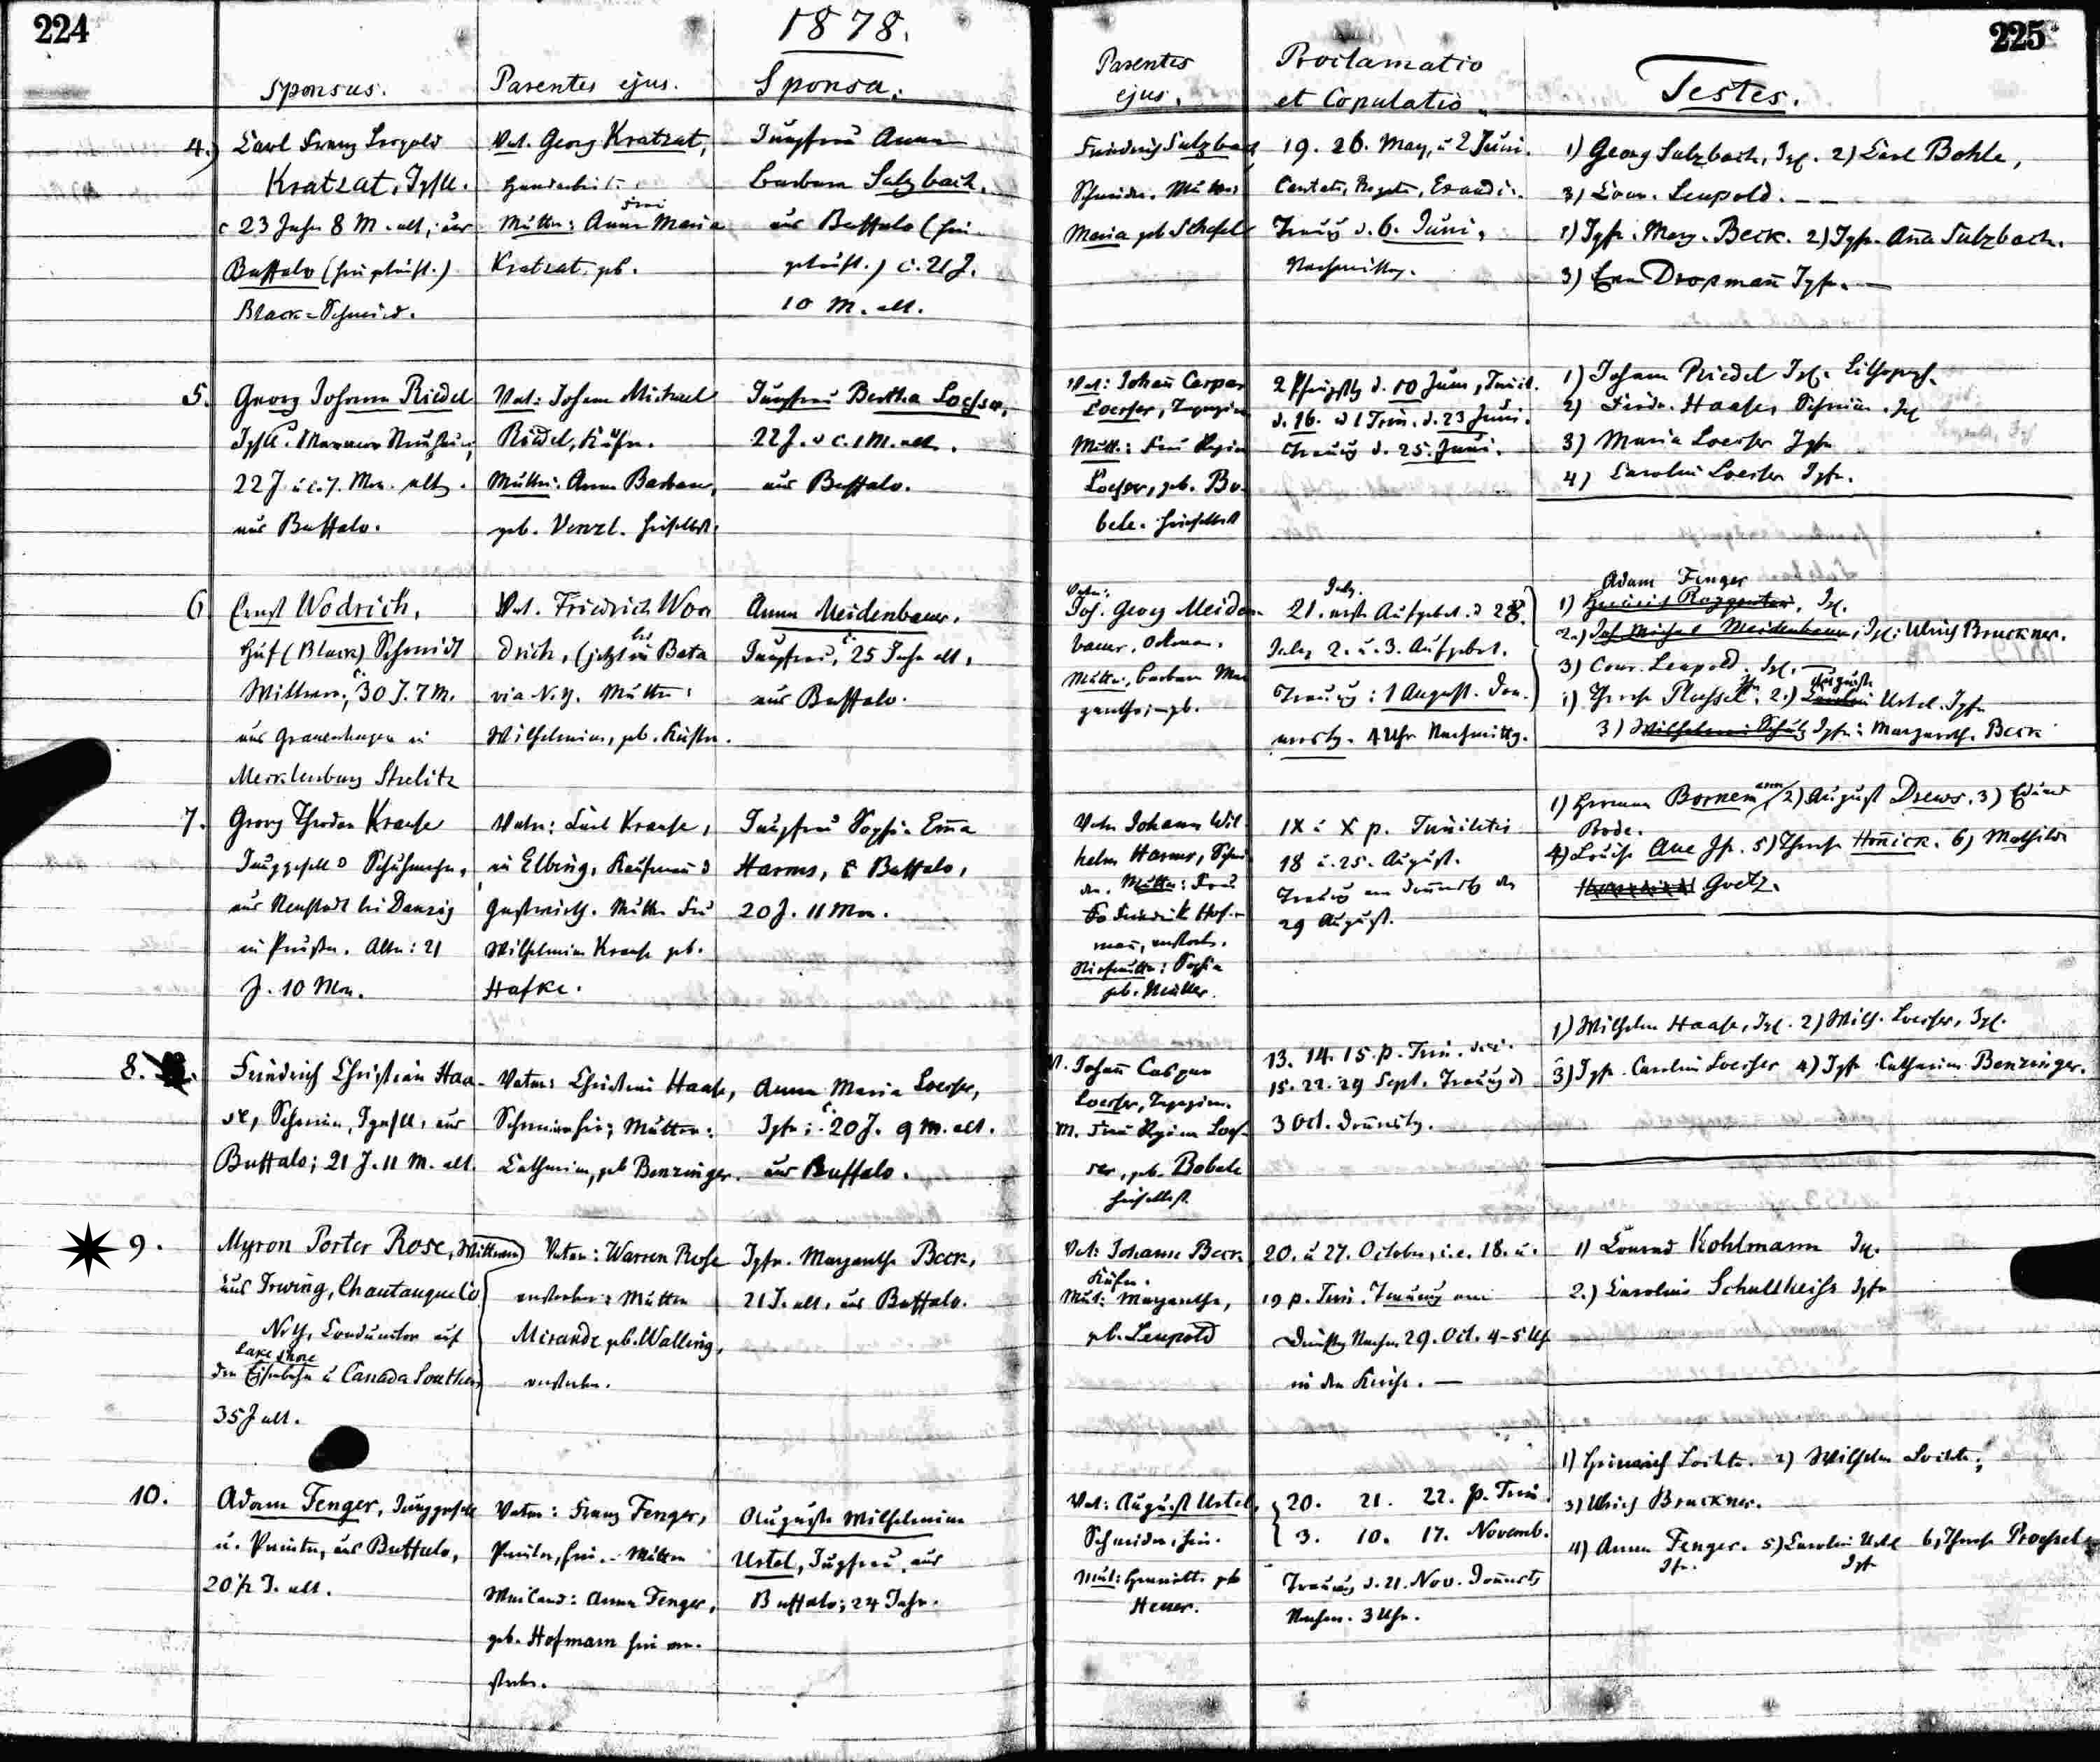 224
1878.
225
Sponsus.
Parentes ejus.
Sponsa.
Parentes
ejus.
Proclamatio
et Copulatio.
Testes.
4.)
Carl Franz Leopold
Kratzat, Jgsll.
c 23 Jahr 8 M. alt, aus
Buffalo
Black-Schmied.
Vat. Georg Kratzat,
Handarbeit.
Frau
Mutter: Anna Maria
Kratzat, geb.
Jungfrau Anna
Barbara Salzbach,
aus Buffalo (hier
getauft.) c. 21 J.
10 M. alt.
Friedrich Sulzbach
Schneider. Mutter
Maria geb Schefel
19. 26. May, u 2 Juni.
Cantate, Rogate, Exaudi.
Trauung d. 6. Juni,
Nachmittag.
1) Georg Sulzbach, Jgs. 2) Carl Bohle,
3) Conr. Leupold. – –
1) Jgfr. Marg. Beck. 2) Jgfr. Ana Sulzbach.
3) Dropman Jgfr. —
5.
Georg Johann Riedel
Jgsll.
22 J u c. 7. Mon. alt.
aus Buffalo.
Vat: Johann Michael
Riedel, Küfer.
Mutter: Anna Barbara,
geb. Venzl. hieselbst.
Jungfrau Bertha Loesser,
22 J. u c. 1 M. alt.
aus Buffalo.
Vat: Johan Caspar
Loesser,
Mutt.: Frau Regina
Loesser, geb. Bo-
bele. hieselbst
2 Pfingsttg d. 10 Juni, Trinit.
d. 16. u 1 Trin. d. 23 Juni.
Trauung d. 25. Juni.
1) Johann Riedel Jgs. Lithograph.
2) Friedr. Haase, Schrein. Jgs
3) Maria Loesser Jgfr
4) Carolin Loesser Jgfr.
6
Ernst Wodrich,
Huf (Black) Schmidt
Wittwer, c 30 J. 7 M.
aus Grauenhagen in
Mecklenburg Strelitz
Vat. Friedrich Woo
drich, (jetzt in bei Bata
via N.Y. Mutter:
Wilhelmine, geb. Küster.
Anna Meidenbauer,
Jungfrau, c 25 Jahr alt,
aus Buffalo.
Vater:
Joh. Georg Meiden-
bauer,
Mutter, Barbara Mar
garetha, geb.
July.
21. erste Aufgebot. d 28.
July 2. u. 3. Aufgebot.
Trauung: 1 August. Don-
nerstg. 4 Uhr Nachmittg.
Adam Fenger
1) Jgs.
2.) Joh Michael Meidenbauer, Jgs: Ulrich Bruckner.
3) Conr. Leupold. Jgs. —
Auguste
1) Plassel. 2.) Carolin Ustel. Jgfr
3) Wilhelmine Schulz Jgfr: Margareth. Beck
7.
Georg Theodor Krause
Junggesell u Schuhmacher,
aus Neustadt bei Danzig
in Preußen. Alter: 21
J. 10 Mon.
Vater: Carl Krause,
in Elbing, Kaufmann u
Gastwirth. Mutter Frau
Wilhelmine Krause geb.
Hafke.
Jungfrau Sophie Ema
Harms, c Buffalo,
20 J. 11 Mon.
Vater Johann Wil-
helm Harms, Schnei-
der. Mutter: Frau
Friederike Hof-
man, verstorb.
Stiefmutter: Sophia
geb. Müller.
IX u X p. Trinitatis
18 u. 25. August.
Trauung am Donnerstg den
29 August.
1) Herman Bornemann 2) August Drews. 3) Eduard
Bode.
4) Louise Aue Jfr. 5) Therese Honick. 6) Mathilde
Goetz.
8.
Friedrich Christian Haa-
se, Schreiner, Jgsell, aus
Buffalo; 21 J. 11 M. alt.
Vater: Christian Haase,
Schreiner hier; Mutter:
Catharina, geb Benzinger.
Anna Maria Loesser,
Jgfr; c. 20 J. 9 M. alt.
aus Buffalo.
V. Johan Caspar
Loesser,
M. Frau Regina Loes-
ser, geb. Bobele
hieselbst.
13. 14. 15. p. Trin. d.i.
15. 22. 29 Sept. Trauung d
3 Oct. Donnerstg.
1) Wilhelm Haase, Jgs. 2) Wilh. Loesser, Jgs.
3) Jgfr. Carolin Loesser 4) Jgfr Catharina Benzinger.
9.
Myron Porter Rose, Wittwer
aus Irwing, Chautauque Co.
N.Y., Conducteur auf
Lake Shore
der Eisenbahn u Canada Southern
35 J alt.
Vater: Warren Rose
verstorben; Mutter
Mirande geb. Walling,
verstorben.
Jgfr. Margaretha Beck,
21 J. alt, aus Buffalo.
Vat: Johann Beck
Küfer.
Mut: Margaretha,
geb. Leupold
20. u 27. October, i.e. 18. u.
19 p. Trin. Trauung am
Dienstg Nachm. 29. Oct. 4-5 Uhr
in der Kirche. —
1) Conrad Kohlmann Jgs.
2.) Carolina Schultheiss Jgfr
10.
Adam Fenger, Junggesell
u. Painter, aus Buffalo,
20 1/2 J. alt.
Vater: Franz Fenger,
Painter, hier. – Mutter
Weiland: Anna Fenger,
geb. Hofmann hier ver-
storben.
Auguste Wilhelmine
Ustel, Jungfrau, aus
Buffalo; 24 Jahr.
Vat: August Ustel,
Schneider, hier.
Mut: Henriette geb
Heuer.
20. 21. 22. p. Trin.
3. 10. 17. Novemb.
Trauung d. 21. Nov. Donnerstg
Nachm. 3 Uhr.
1) Heinrich Loickte. 2) Wilhelm Loickte;
3) Ulrich Bruckner.
4) Anna Fenger. 5) Carolin Ustel 6) Therese Proessel
Jfr. Jgfr